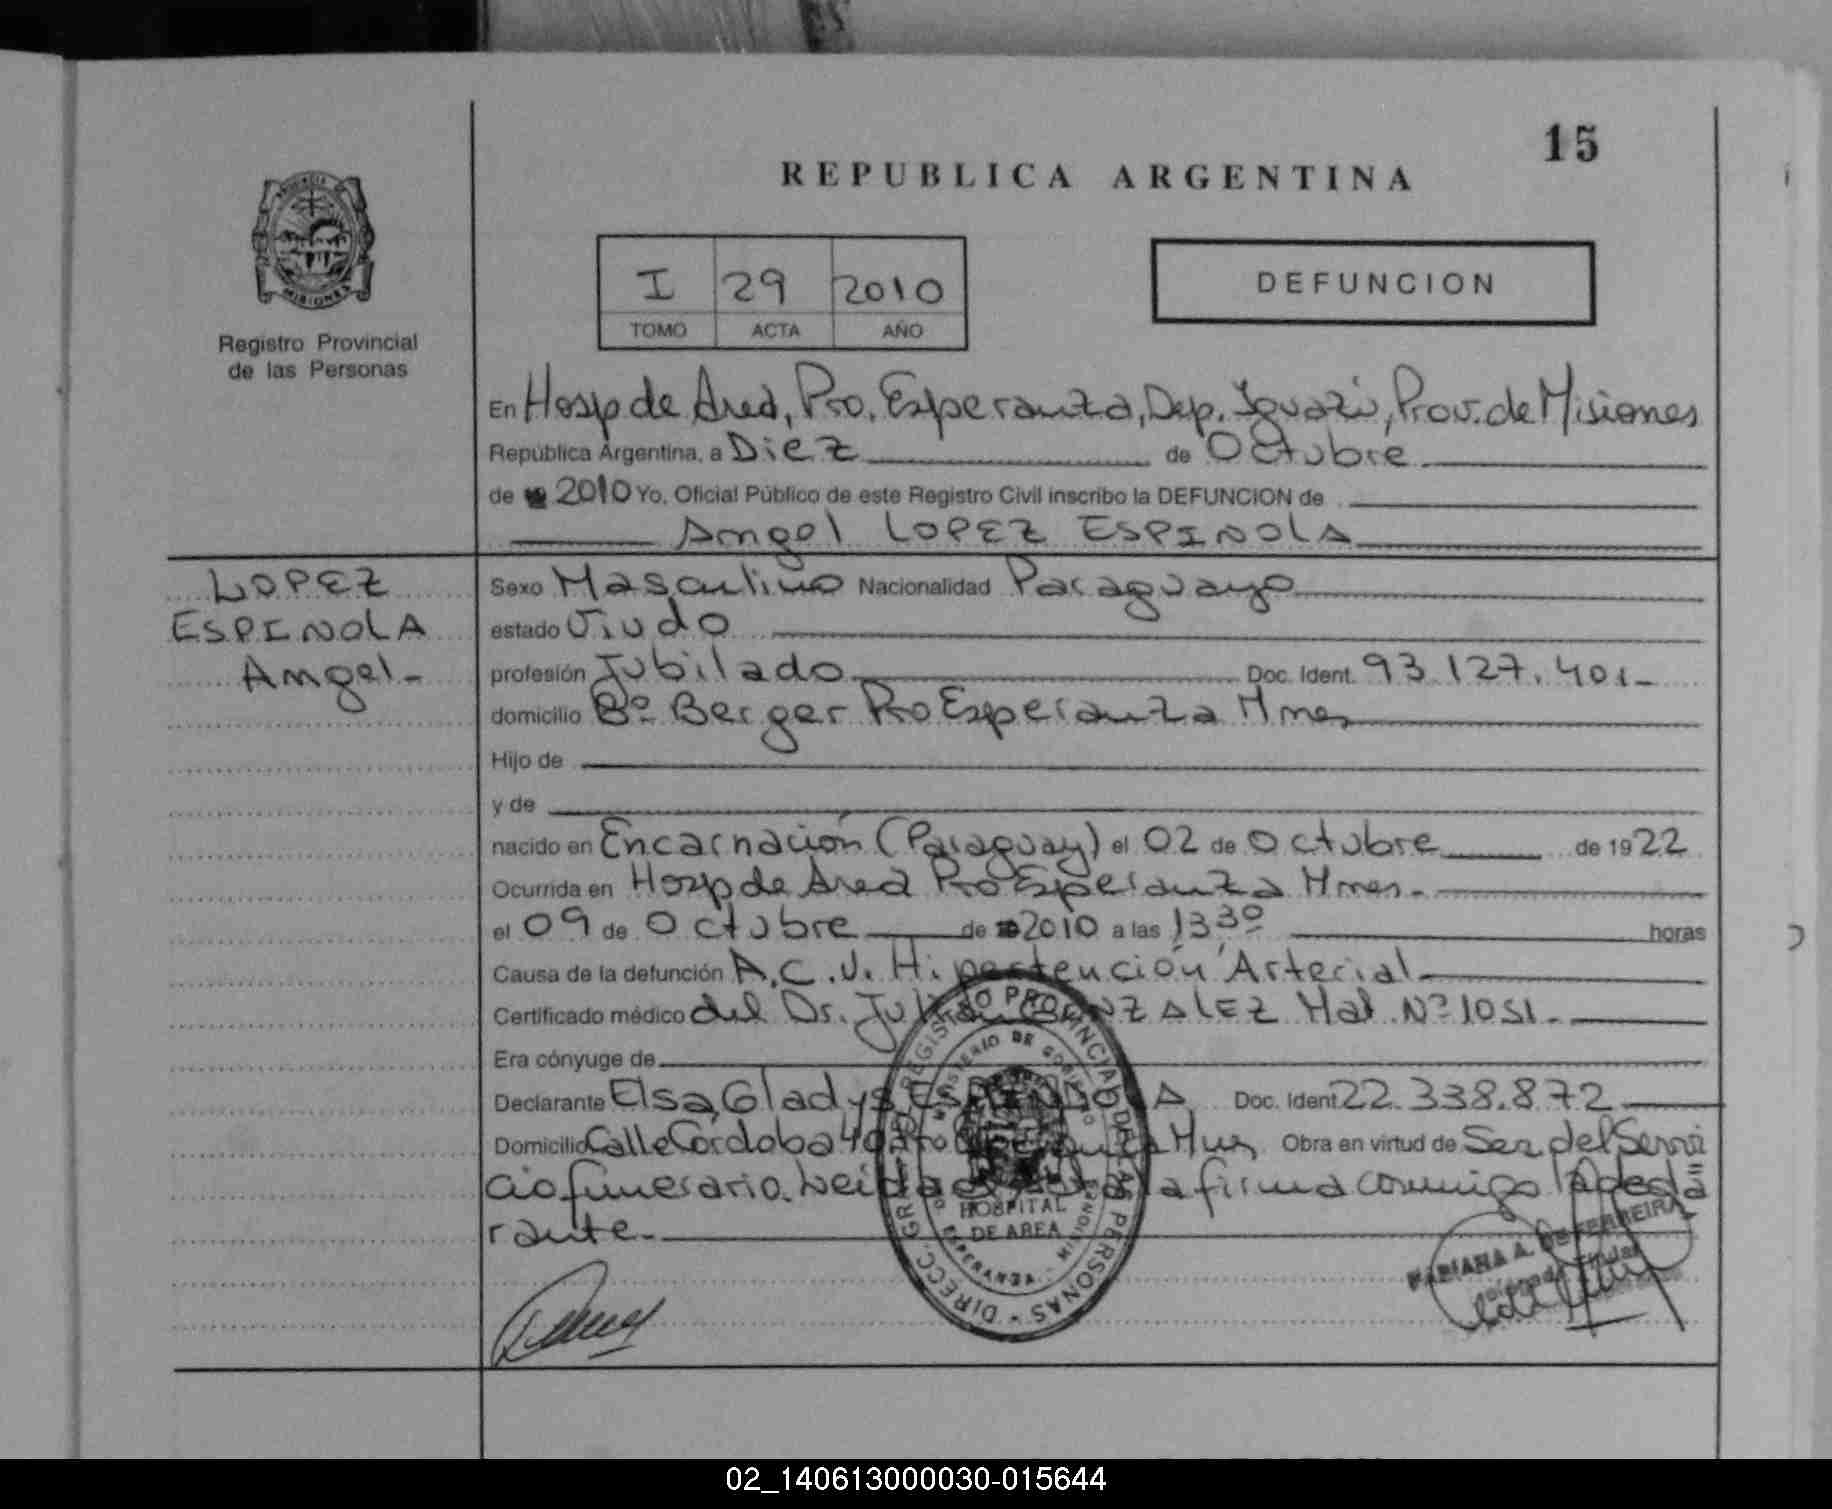 15
REPUBLICA ARGENTINA
PROVINCIA DE
MISIONES
Registro Provincial
de las Personas
I 29 2010
TOMO ACTA AÑO
DEFUNCION
En Hosp de Area, Pto. Esperanza, Dep. Iguazú, Prov. de Misiones
República Argentina, a Diez de Octubre
de 2010 Yo, Oficial Público de este Registro Civil inscribo la DEFUNCION de
Angel LOPEZ ESPINOLA
LOPEZ
ESPINOLA
Angel-
Sexo Masculino Nacionalidad Paraguayo
estado Viudo
profesión Jubilado Doc. Ident. 93.127.401-
domicilio Bº Berger Pto Esperanza Mnes
Hijo de
y de
nacido en Encarnación (Paraguay) el 02 de Octubre de 1922
Ocurrida en Hosp de Area Pto Esperanza Mnes.
el 09 de Octubre de 2010 a las 13 30 horas
Causa de la defunción A.C.V. Hipertención Arterial
Certificado médico del Dr. Julián GONZALEZ Mat Nº 1051.
Era cónyuge de
Declarante Elsa Gladys ESPINDOLA Doc. Ident. 22.338.872
Domicilio Calle Córdoba Mnes Obra en virtud de Ser del Servi
cio funerario. Leida el acta la firma conmigo la decla=
rante.
REGISTRO PROVINCIAL DE LAS PERSONAS - DIRECC. GRAL.
MINISTERIO DE GOBIERNO
HOSPITAL
DE AREA
ESPERANZA - MISIONES
FABIANA A. DE FERREIRA
Titular
02_140613000030-015644